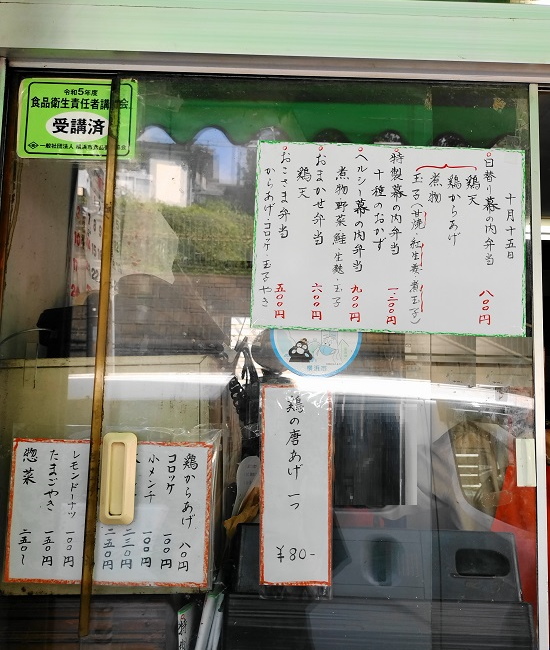 令和5年度
食品衛生責任者講習会
受講済
十月十五日
日替り幕の内弁当 八〇〇円
鶏天
鶏からあげ
煮物
玉子(甘焼・紅生姜・煮玉子)
特製幕の内弁当 一二〇〇円
十種のおかず
ヘルシー幕の内弁当 九〇〇円
煮物・野菜・鮭・生麩・玉子
おまかせ弁当 六〇〇円
鶏天
おこさま弁当 五〇〇円
からあげ・コロッケ・玉子やき
横浜市
鶏の唐あげ 一つ
¥80-
鶏からあげ 八〇円
コロッケ 一〇〇円
小メンチ 一〇〇円
二二〇円
二五〇円
レモンドーナツ 一〇〇円
たまごやき 一五〇円
惣菜 二五〇〜